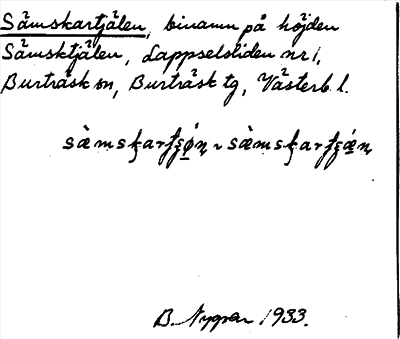 Sämskartjälen, binamn på höjden
Sämsktjälen, Lappselsliden nr 1,
Burträsk sn, Burträsk tg, Västerb. l.
B. Nygren 1933.